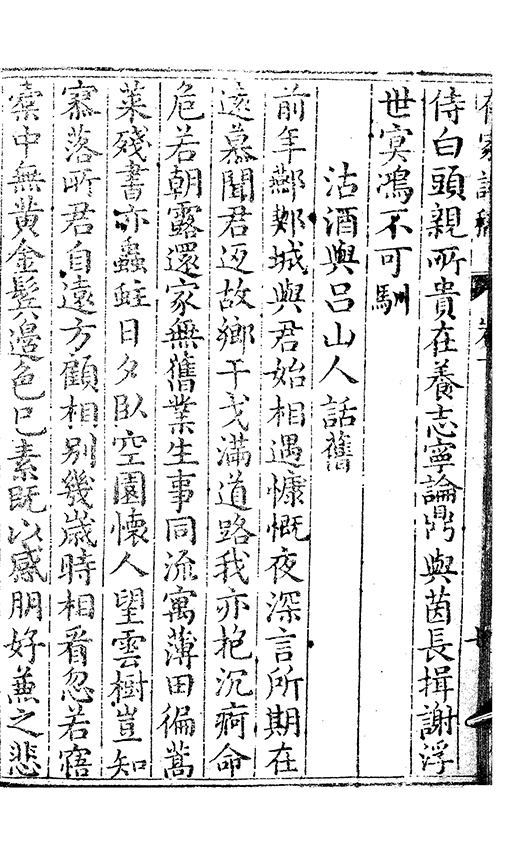 侍白頭親所貴在養志寧論鼎與茵長揖謝浮
世冥鴻不可馴
沽酒與呂山人話舊
前年鄴城與君始相遇慷慨夜深言所期在
遠慕聞君迈故鄉干戈滿道路我亦抱沉痾命
危若朝露還家無舊業生事同流寓薄田徧蒿
萊殘書亦蟲蛀日夕臥空園懷人望雲樹豈知
寡落所君自遠方顧相別幾歲時相看忽若寤
橐中無黃金鬂邊色已素既以感朋好兼之悲